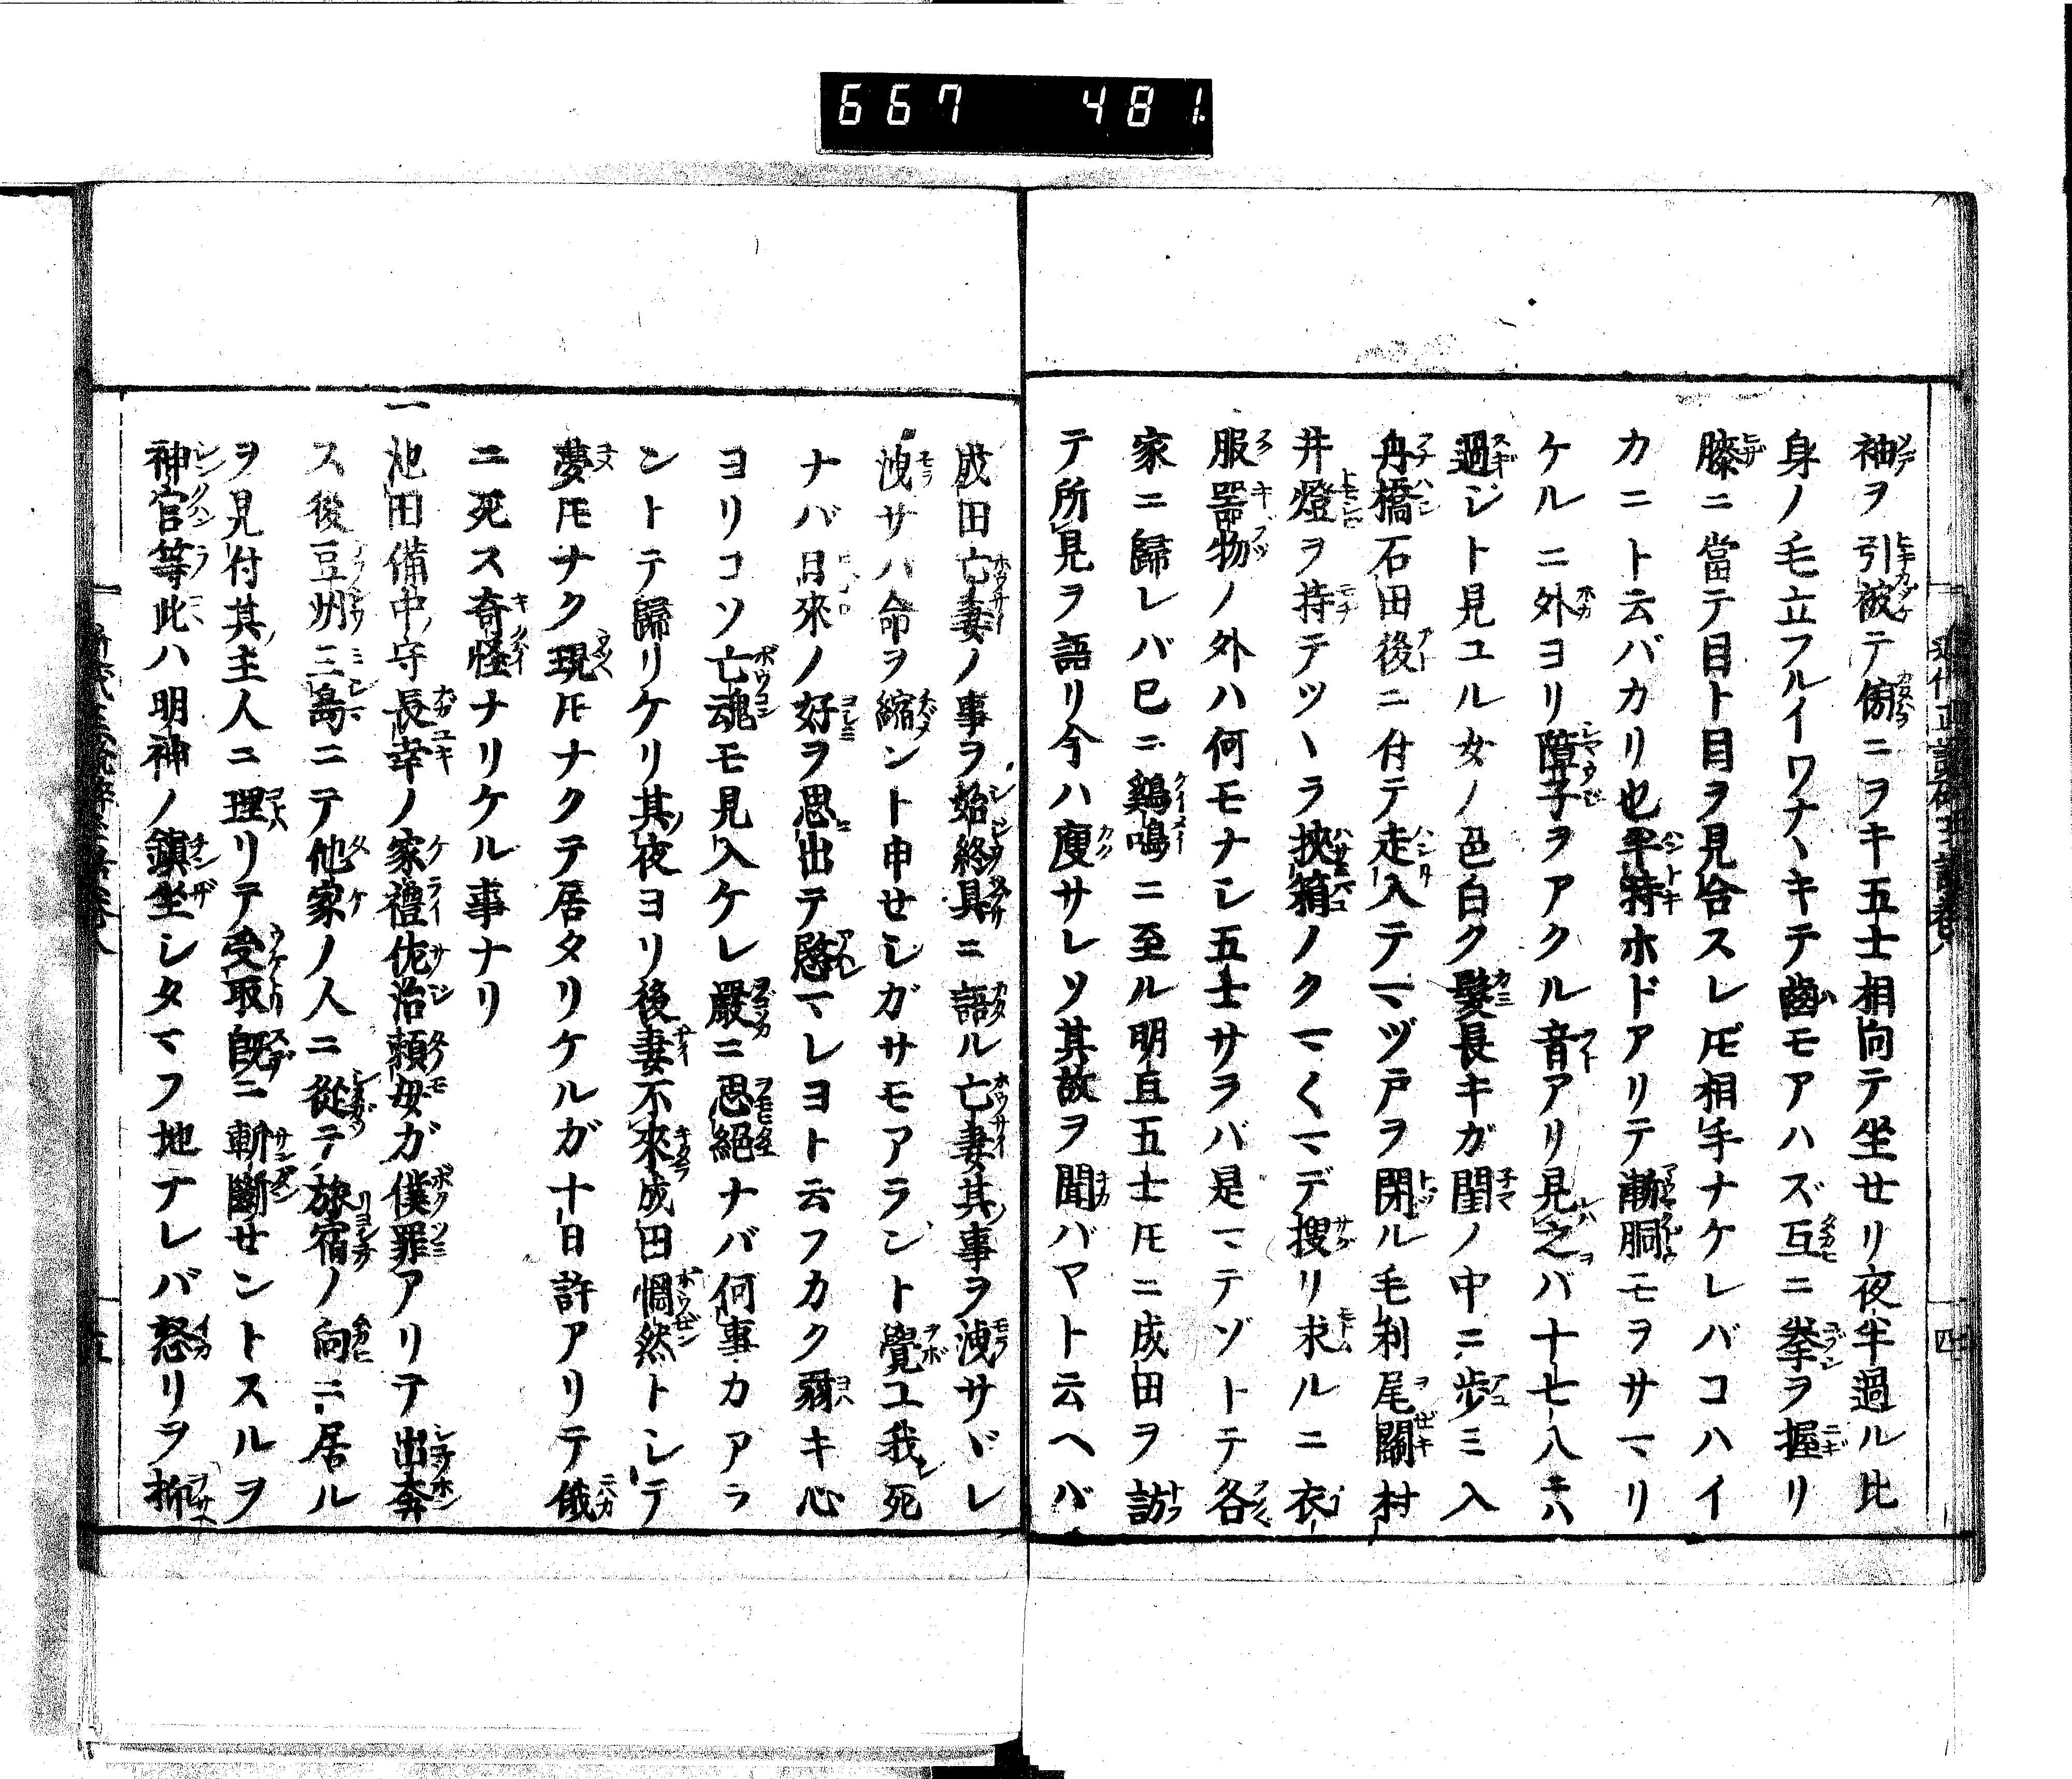 667 481
袖ヲ引被テ傍ニヲキ五士相向テ坐せリ夜半過ル比
身ノ毛立フルイワナヽキテ齒モアハズ互ニ拳ヲ握リ
膝ニ當テ目ト目ヲ見合スレ𪜈相手ナケレバコハイ
カニト云バカリ也半時ホドアリテ漸胴モヲサマリ
ケルニ外ヨリ障子ヲアクル音アリ見之バ十七八ニハ
過ジト見ユル女ノ色白ク髮長キガ閨ノ中ニ歩ミ入
冉橋石田後ニ付テ走入テマヅ戸ヲ閉ル毛利尾關村
井燈ヲ持テツヽラ挾箱ノクマ〱マデ搜リ求ルニ衣
服器物ノ外ハ何モナシ五士サラバ是マテゾトテ各
家ニ歸レバ巳ニ鷄鳴ニ至ル明旦五士𪜈ニ成田ヲ訪
テ所見ヲ語リ今ハ廋サレソ其故ヲ聞バヤト云ヘバ
成田亡妻ノ事ヲ始終具ニ語ル亡妻其事ヲ洩サヾレ
洩サハ命ヲ縮ント申せシガサモアラント覺ユ我死
ナバ日來ノ好ヲ思出テ愍マレヨト云フカク弱キ心
ヨリコソ亡魂モ見入ケレ嚴ニ思絕ナバ何事カアラ
ントテ歸リケリ其夜ヨリ後妻不來成田惘然トシテ
夢𪜈ナク現𪜈ナクテ居タリケルガ十日許アリテ俄
ニ死ス奇怪ナリケル事ナリ
一池田備中守長幸ノ家禮佐治頼母ガ僕罪アリテ出奔
ス後豆州三島ニテ他家ノ人ニ從テ旅宿ノ向ニ居ル
ヲ見付其主人ニ理リテ受取既ニ斬斷せントスルヲ
神官等此ハ明神ノ鎭坐シタマフ地ナレバ怒リヲ抑